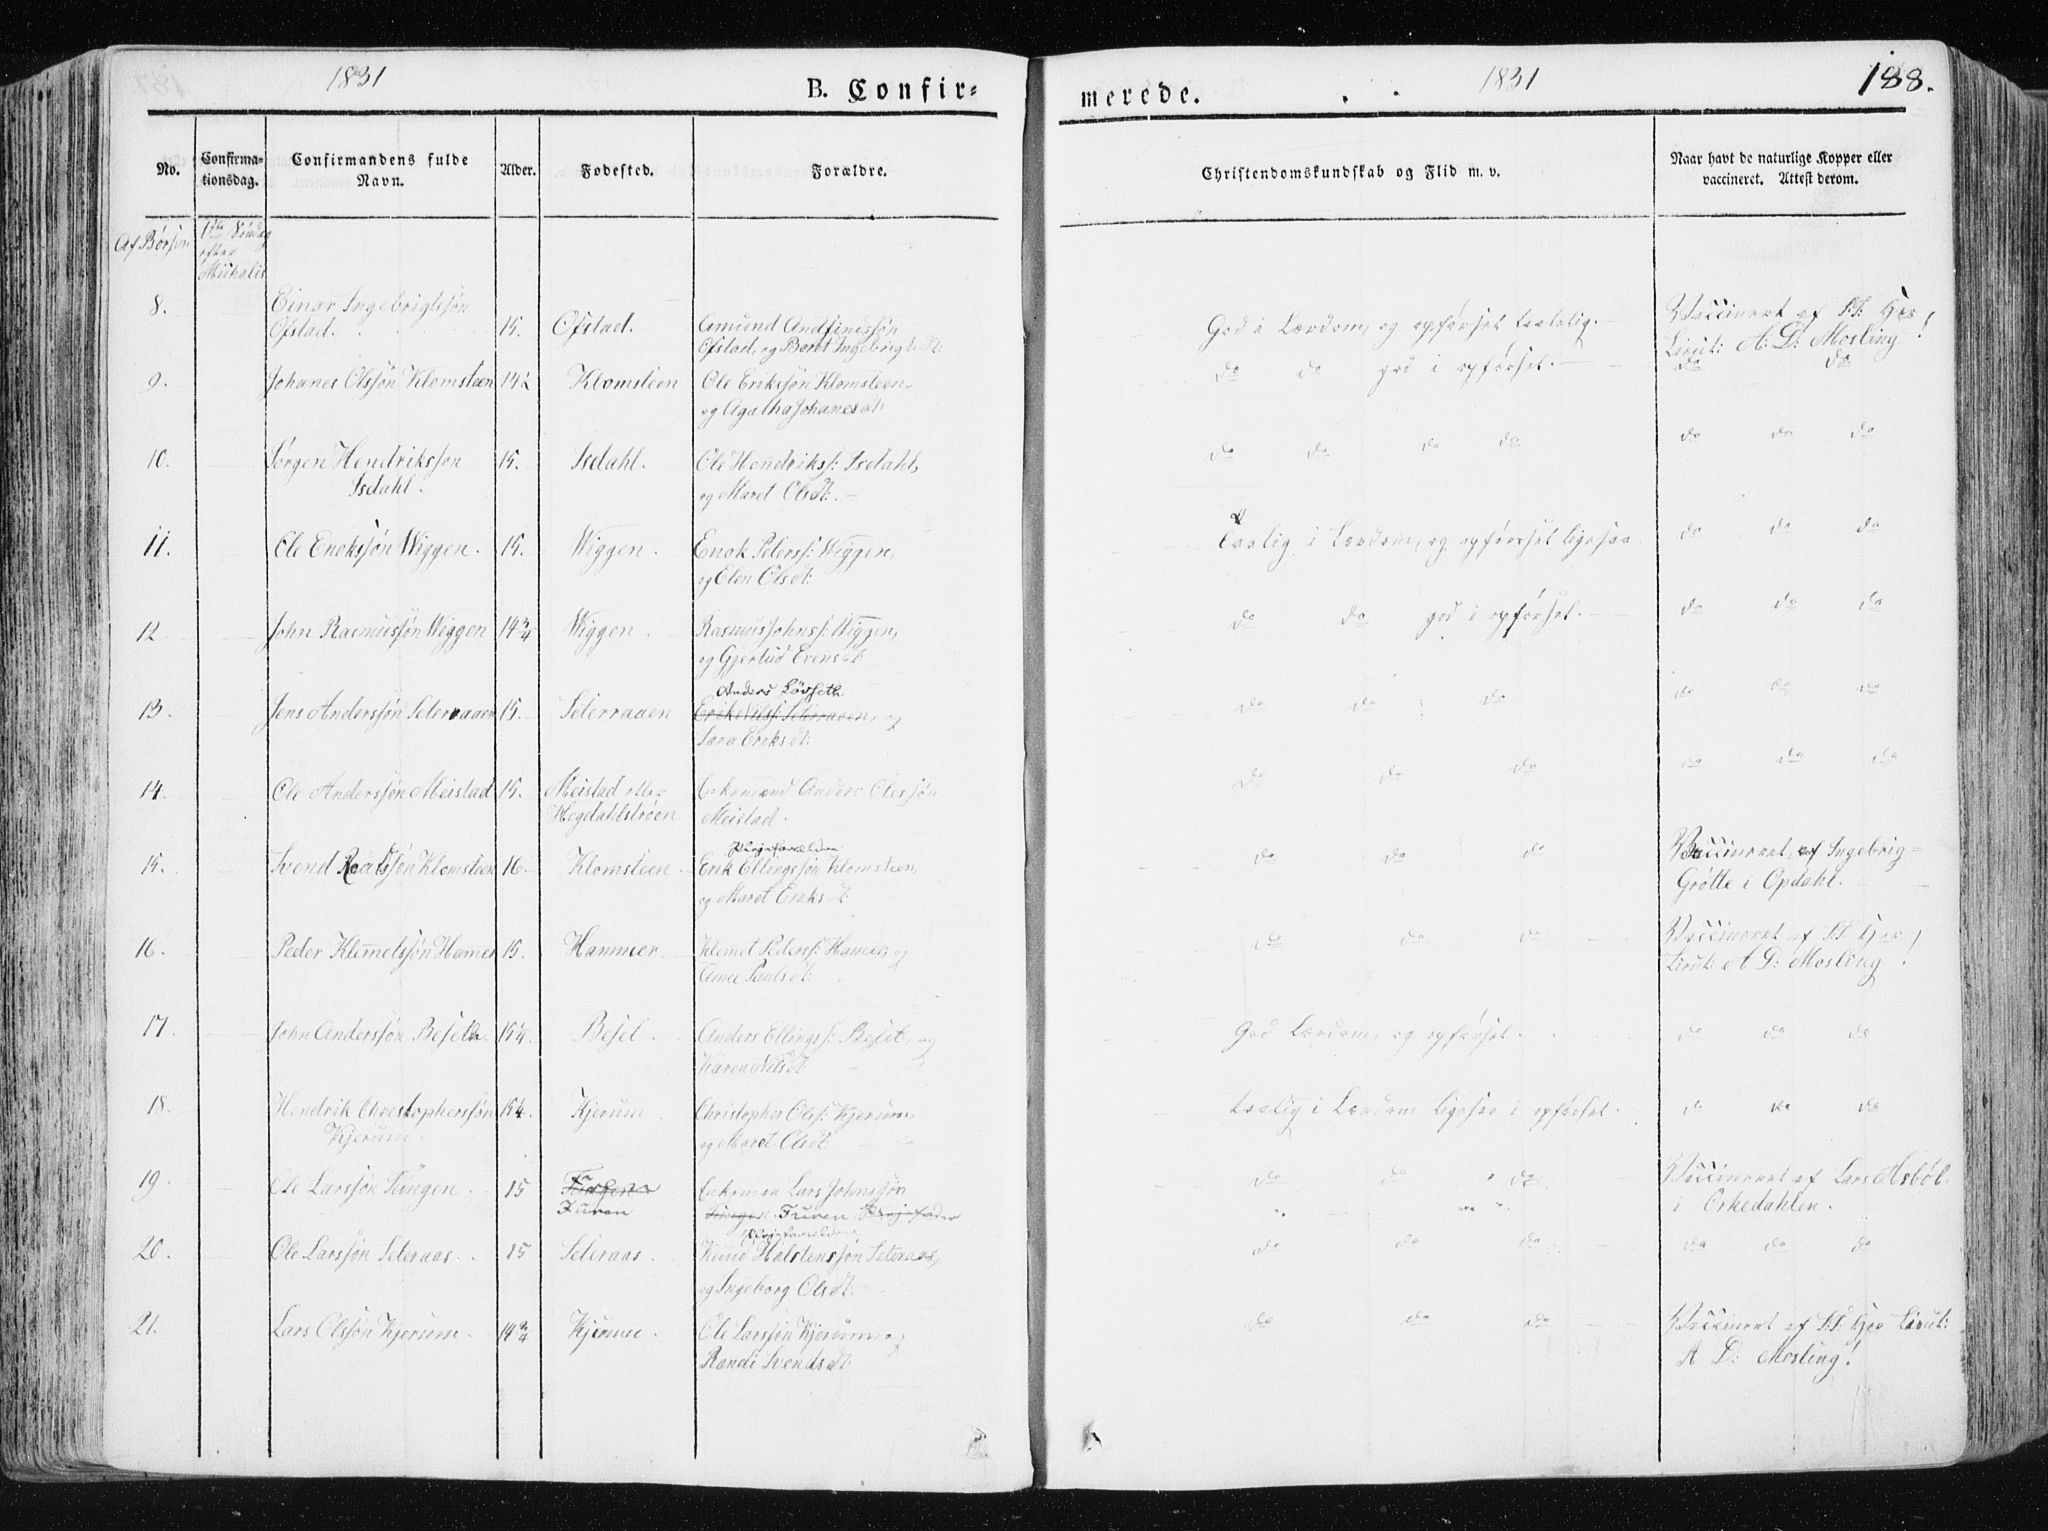 1831
B. Confir=
merede.
1831
188.
No.
Confirma-
tionsdag.
Confirmandens fulde
Navn.
Alder.
Fødested.
Forældre.
Christendomskundskab og Flid m. v.
Naar havt de naturlige Kopper eller
vaccineret. Attest derom.
Af Børsen
17de Søndag
efter
Michalis
8.
Einar Ingebrigtsøn
Ofstad.
15.
Ofstad.
Amund Andfinnsøn
Ofstad, og Baret Ingebrigtsdt:
God i Lærdom, og opførset taalelig.
Vaccineret af S.T. Her
Lieut: A: D: Mosling!
9.
Johanes Olssøn Klomsteen
14½
Klomsteen
Ole Erikssøn Klomsteen
og Agatha Johanesdt:
do do god i opførsel.
do do
10.
Jørgen Hendrikssøn
Isdahl.
15.
Isdahl.
Ole Hendrikss: Isdahl,
og Maret Olsdt:
do do do do
do do do
11.
Ole Enokssøn Wiggen.
15.
Wiggen.
Enok Peterss: Wiggen,
og Elen Olsdt:
Taalelig i Lærdom, og opførset ligesaa.
do do do
12
John Rasmussøn Wiggen
14¾
Wiggen.
Rasmus Johns: Wiggen,
og Gjertud Evensdt:
do do god i opførsel.
do do do
13.
Jens Anderssøn Seterraaen
15.
Seterraaen
Anders Lövseth
Erik Nilss: Seterraaen, og
Sara Eriksdt:
do do do
do do do
14.
Ole Anderssøn Meistad
15.
Meistad eller
Hegdahlstrøen
Enkemand Anders Olessøn
Meistad.
do do do
do do do
15.
Svend Roaldssøn Klomsteen
16
Klomsteen
Plejeforældre
Erik Ellingssøn Klomsteen,
og Maret Eriksdt:
do do do
Vaccineret af Ingebrig=
Grötte i Opdahl.
16.
Peder Klemetssøn Hamer
15.
Hammer.
Klemet Pederss: Hamer, og
Anne Paulsdt:
do do do
Vaccineret af S.T. Her
Lieut: A D: Mosling!
17.
John Anderssøn Beseth.
15¼.
Besel.
Anders Ellingss: Beset, og
Karen Nilsdt:
God Lærdom, og opførset.
do do do
18.
Hendrik Christopherssøn
Kjerum.
15¼.
Kjerum.
Christopher Olss: Kjerum,
og Maret Olsdt:
taalelig i Lærdom ligesaa i opførset.
do do do
19.
Ole Larssøn Tüngen.
15
Furen
Enkeman Lars Johnssøn
Furen, Plejefader
do do do
Vaccineret af Lars Asböl
i Orkedahlen.
20.
Ole Larssøn Seteraas.
15
Seteraas.
Plejeforældre
Knud Halstenssøn Seteraas,
og Ingeborg Olsdt:
do do do
do do do
21.
Lars Olssøn Kjerum.
14¾
Kjerum.
Ole Larssøn Kjerum og
Randi Svendsdt:
do do do
Vaccineret af S.T. Her Lieut:
A D: Mosling!